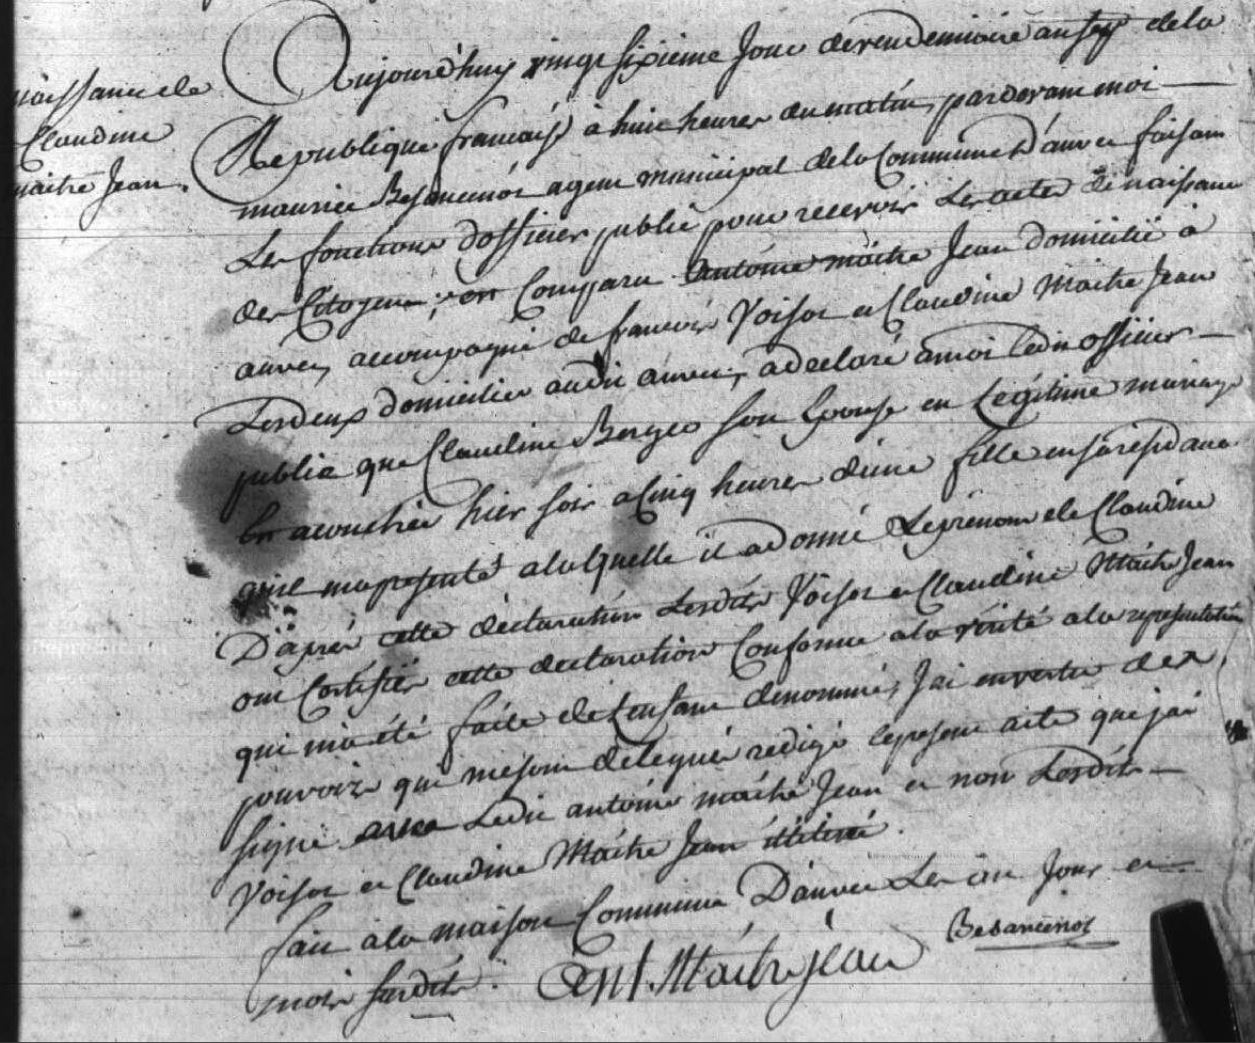 naissance de
Claudine
maitre Jean.
Aujourd'huy vingt sixieme Jour de vendemiaire an sept de la
Republique francaise a huit heures du matin, pardevant moi
maurice Besancenot agent municipal de la Commune d'auvet faisant
Les fonctions dofficier public pour recevoir Les actes de naissance
des Citoyens, est Comparu antoine maitre Jean domicilié à
auvet, accompagné de francois Voisot et Claudine Maitre Jean
Lesdeux domiciliés audit auvet, a declaré a moi ledit officier
public que Claudine Berger son Epouse en Legitime mariage
est acouchée hier soir a Cinq heures d'une fille en sa residance
quil ma presenté a laquelle il a donné Le prenom de Claudine
D'après cette declaration Lesdits Voisot et Claudine Maitre Jean
ont Certifiés cette declaration Conforme a la vérité a la representation
qui m'a été faite de Lenfant denommé, J'ai en vertu des
pouvoirs qui me sont delegués redigé le present acte que j'ai
signé avec Ledit antoine maitre Jean et non Lesdits
Voisot et Claudine Maitre Jean illiteré.
fait a la maison Commune D'auvet Les an Jour et
mois susdits. Ant. Maitrejean Besancenot